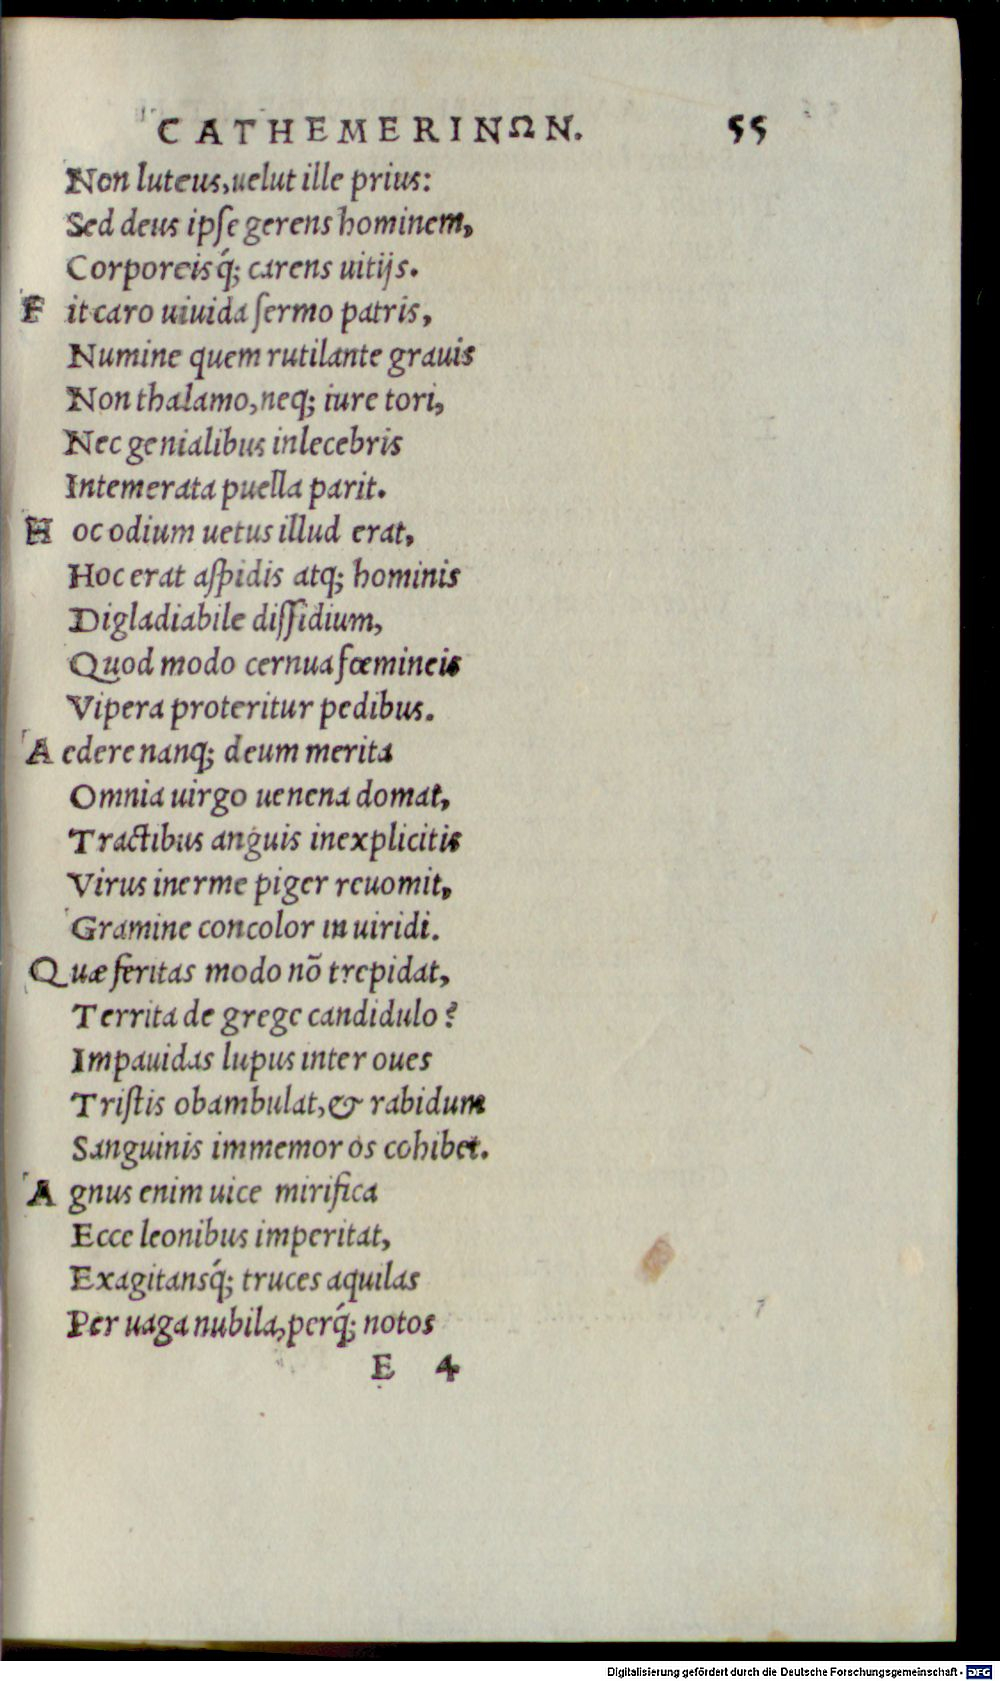 CATHEMERINΩN. 55
Non luteus, uelut ille prius:
Sed deus ipſe gerens hominem,
Corporeisq́; carens uitijs.
F it caro uiuida ſermo patris,
Numine quem rutilante grauis
Non thalamo, neq; iure tori,
Nec genialibus inlecebris
Intemerata puella parit.
H oc odium uetus illud erat,
Hoc erat aſpidis atq; hominis
Digladiabile diſſidium,
Quod modo cernua fœmineis
Vipera proteritur pedibus.
A edere nanq; deum merita
Omnia uirgo uenena domat,
Tractibus anguis inexplicitis
Virus inerme piger reuomit,
Gramine concolor in uiridi.
Q uæ feritas modo nõ trepidat,
Territa de grege candidulo?
Impauidas lupus inter oues
Triſtis obambulat, & rabidum
Sanguinis immemor os cohibet.
A gnus enim uice mirifica
Ecce leonibus imperitat,
Exagitansq́; truces aquilas
Per uaga nubila, perq́; notos
E 4
Digitalisierung gefördert durch die Deutsche Forschungsgemeinschaft - DFG